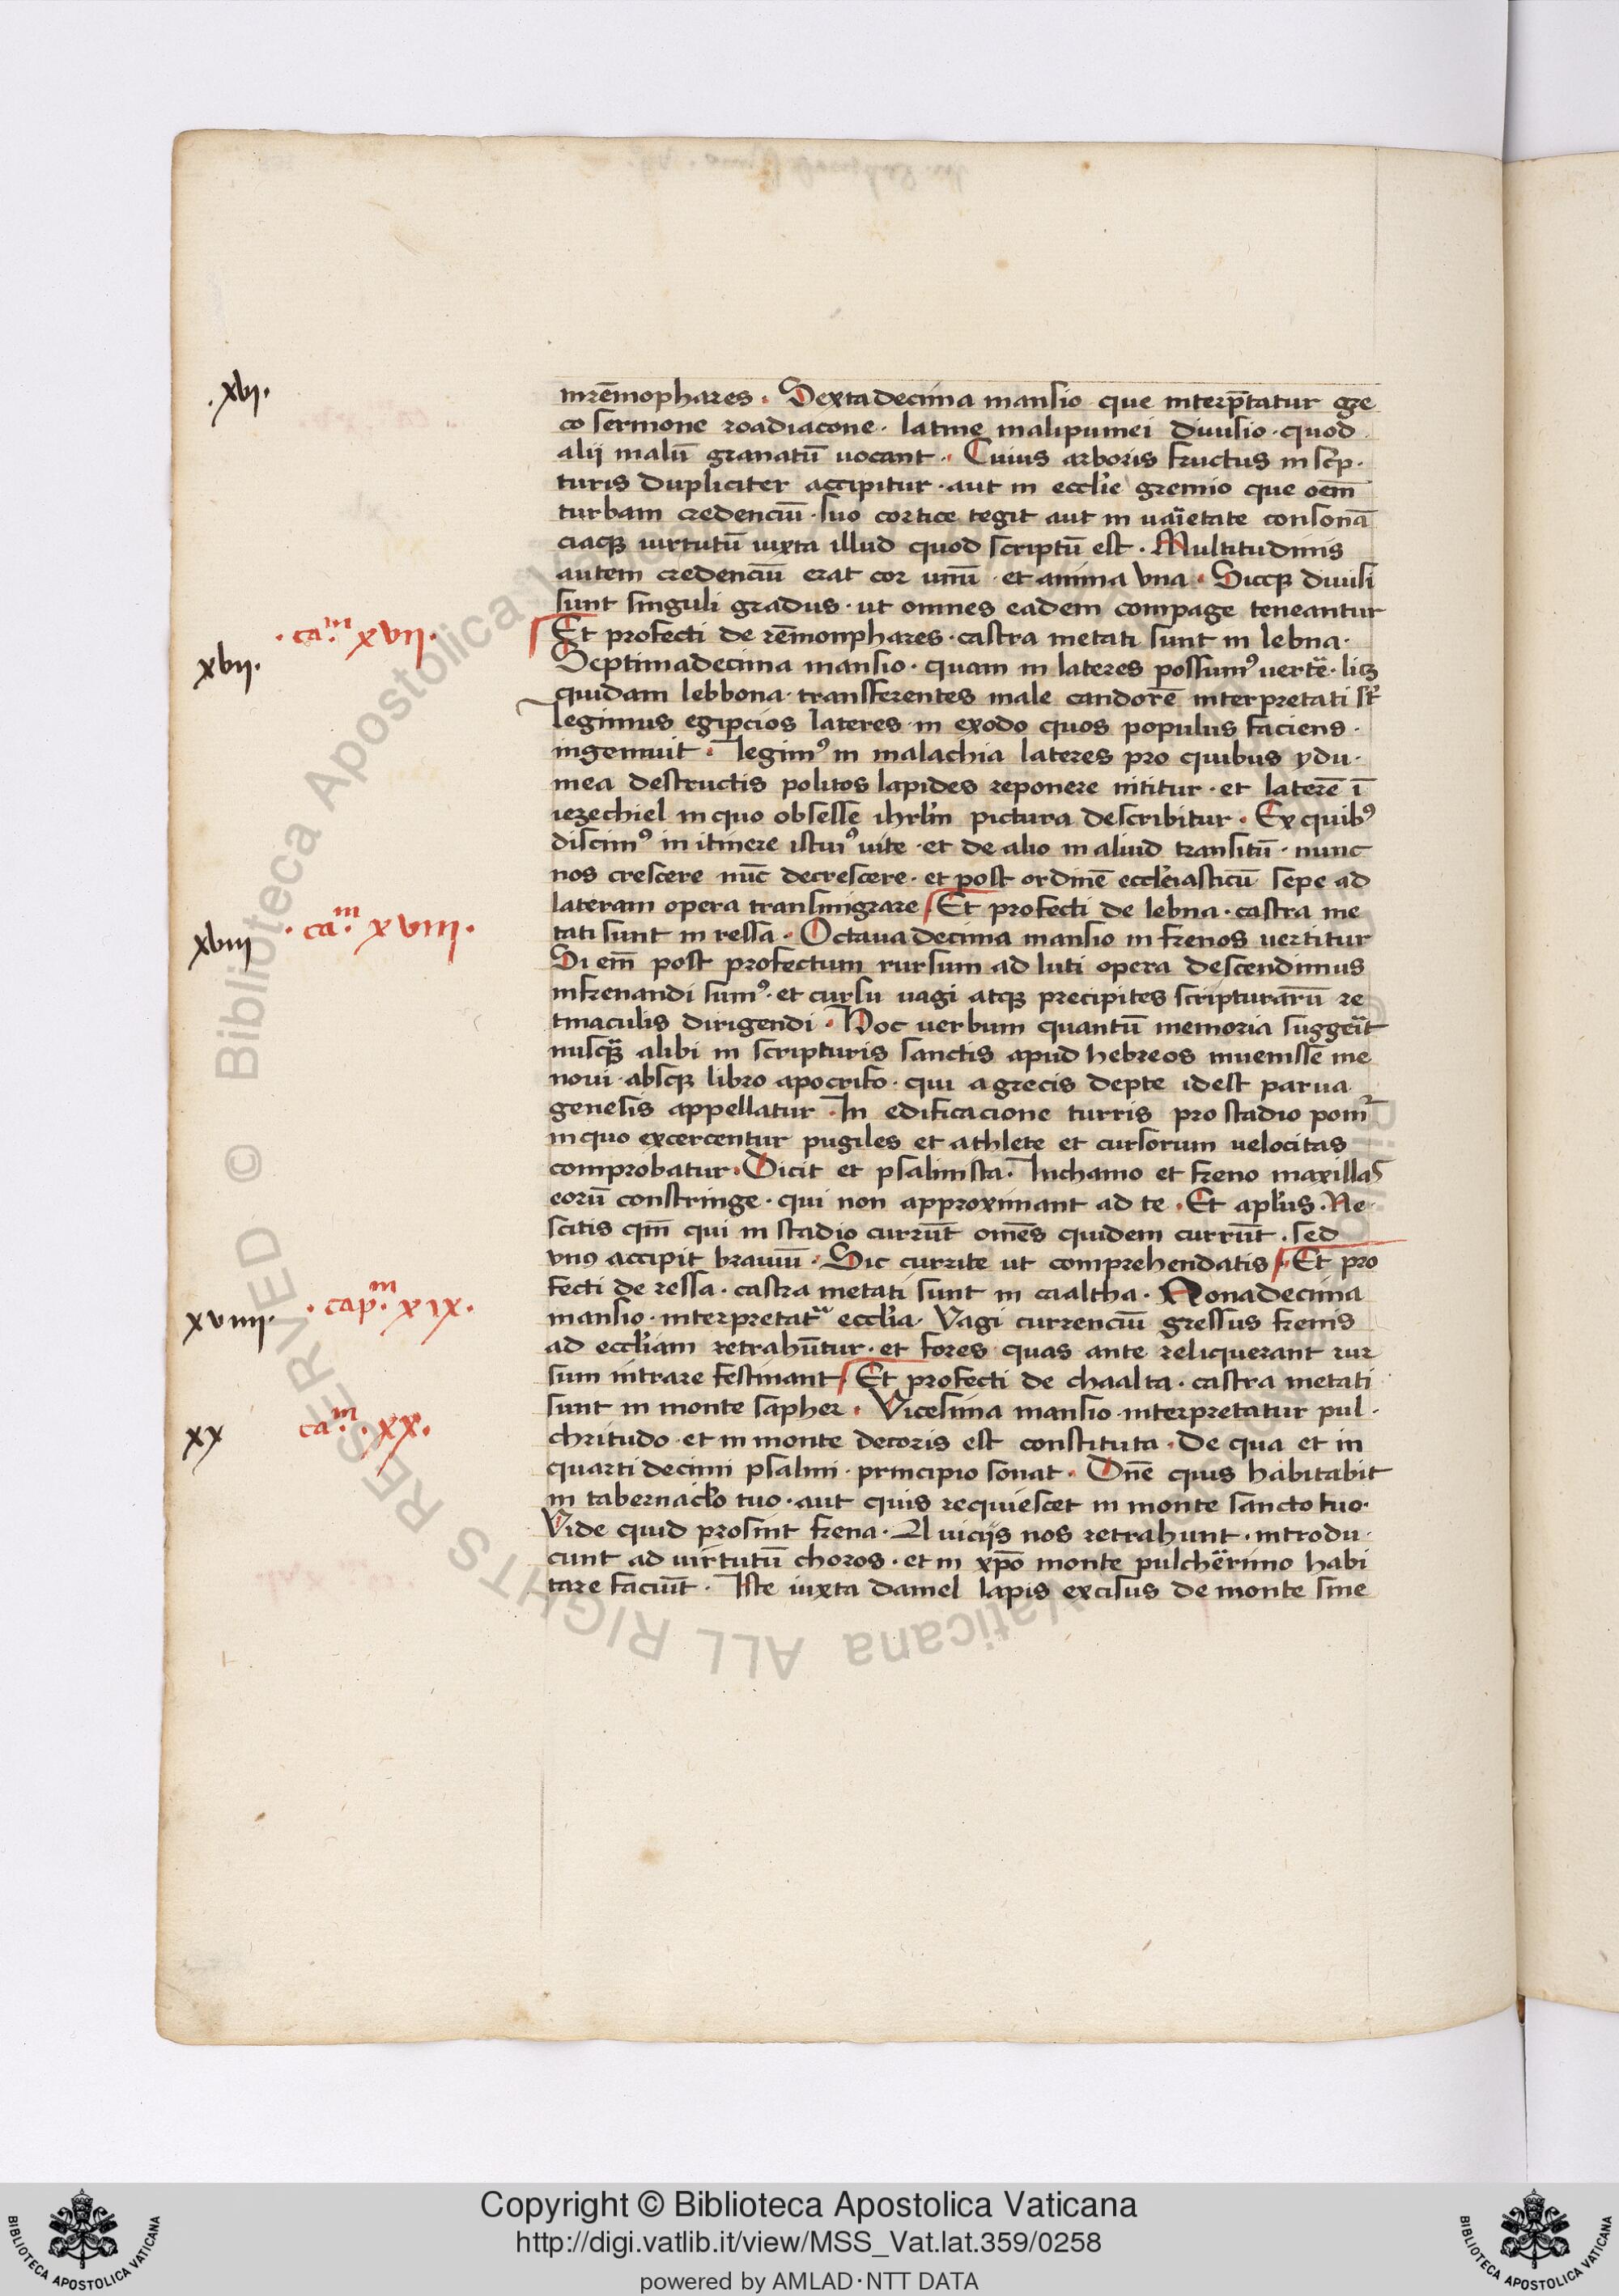 .xvi.
inrēmophares. Sexta decima mansio que interp̄tatur gre
co sermone roadiacone. latine malipumei diuisio. quod
alij malū granatū uocant. Cuius arboris fructus in scrip.
turis dupliciter accipitur. aut in eccl'ie gremio que oēm
turbam credenciū. suo cortice tegit aut in uarietate consonā
ciaqꝫ uirtutū iuxta illud quod scriptū est. Multitudinis
autem credenciū erat cor unū. et anima vna. Sicqꝫ diuisi
sunt singuli gradus. ut omnes eadem compage teneantur
.ca.m xvii.
Et profecti de rēmonphares. castra metati sunt in lebna.
xvii.
Septimadecima mansio. quam in lateres possumꝰ uertē. licꝫ
quidam lebbona. transferentes male candorē interpretati st̄
legimus egipcios lateres in exodo quos populus faciens.
ingemuit. legimꝰ in malachia lateres pro quibus ydu.
mea destructis politos lapides reponere nititur. et laterē ī
iezechiel in quo obsesse ihrl'm pictura describitur. Ex quibꝰ
discimꝰ in itinere istuiꝰ uite. et de alio in aliud transitū. nunc
nos crescere nūc decrescere. et post ordinē eccl'iasticū sepe ad
lateram opera transmigrare Et profecti de lebna. castra me
xviii .ca.m xviii.
tati sunt in ressa. Octaua decima mansio in frenos uertitur
Si em̄ post profectum rursum ad luti opera descendimus
infrenandi sumꝰ. et cursu uagi atqꝫ precipites scripturarū re
tinaculis dirigendi. Hoc uerbum quantū memoria suggerit
nusqꝫ alibi in scripturis sanctis apud hebreos inuenisse me
noui. absqꝫ libro apocrifo. qui a grecis depte idest parua
genesis appellatur. In edificacione turris pro stadio ponit̄
in quo excercentur pugiles et athlete et cursorum uelocitas
comprobatur. Dicit et psalmista. Inchamo et freno maxillas
eorū constringe. qui non approximant ad te. Et apl'us. Ne.
scitis qm̄ qui in stadio currūt omēs quidem currūt. sed
vnꝰ accipit brauiū. Sic currite ut comprehendatis. Et pro
fecti de ressa. castra metati sunt in caaltha. Nonadecima
xviiii. .cap.m xix.
mansio. interpretatr̄ eccl'ia. Vagi currenciū gressus frenis
ad eccl'iam retrahūtur. et fores quas ante reliquerant rur
sum intrare festinant Et profecti de chaalta. castra metati
sunt in monte sapher. Vicesima mansio interpretatur pul.
xx ca.m .xx.
chritudo. et in monte decoris est constituta. De qua et in
quarti decimi psalmi. principio sonat. Dn̄e quis habitabit
in tabernac'lo tuo. aut quis requiescet in monte sancto tuo.
Vide quid prosint frena. A uicijs nos retrahunt. introdu.
cunt ad uirtutū choros. et in xpo monte pulcherrimo habi
tare faciūt. Iste iuxta daniel lapis excisus de monte sine
© Biblioteca Apostolica Vaticana ALL RIGHTS RESERVED
Copyright © Biblioteca Apostolica Vaticana
http://digi.vatlib.it/view/MSS_Vat.lat.359/0258
powered by AMLAD·NTT DATA
BIBLIOTECA APOSTOLICA VATICANA
BIBLIOTECA APOSTOLICA VATICANA